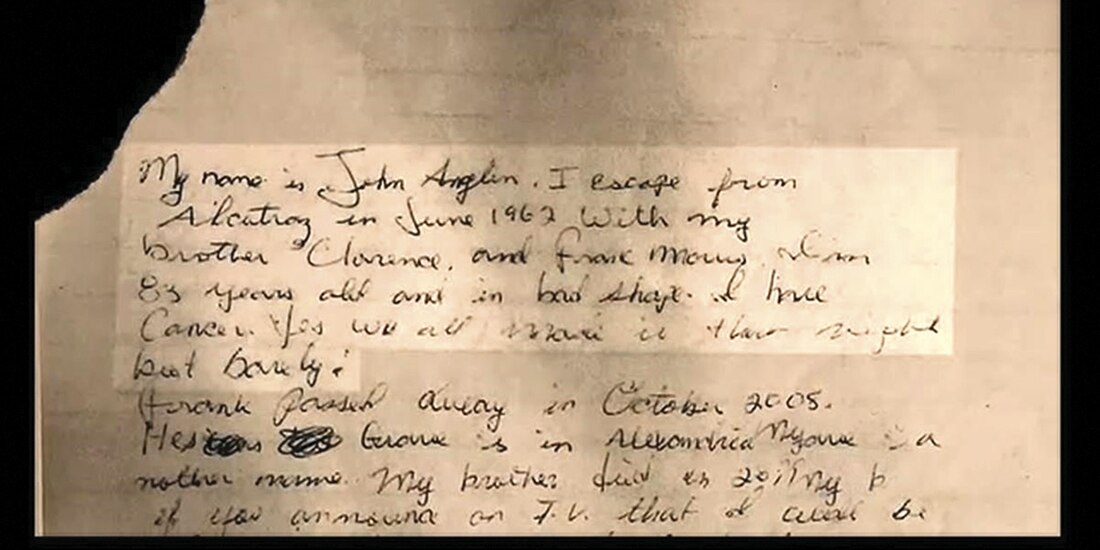 My name is John Anglin. I escape from
Alcatraz in June 1962 With my
brother Clarence, and Frank Morris. I'm
83 years old and in bad shape. I have
Cancer. Yes we all made it that night
but barely!
Frank passed away in October 2005.
Hes Grave is in Alexandria under a
nother name. My brother died in 2011 My
if you announce on T.V. that I be